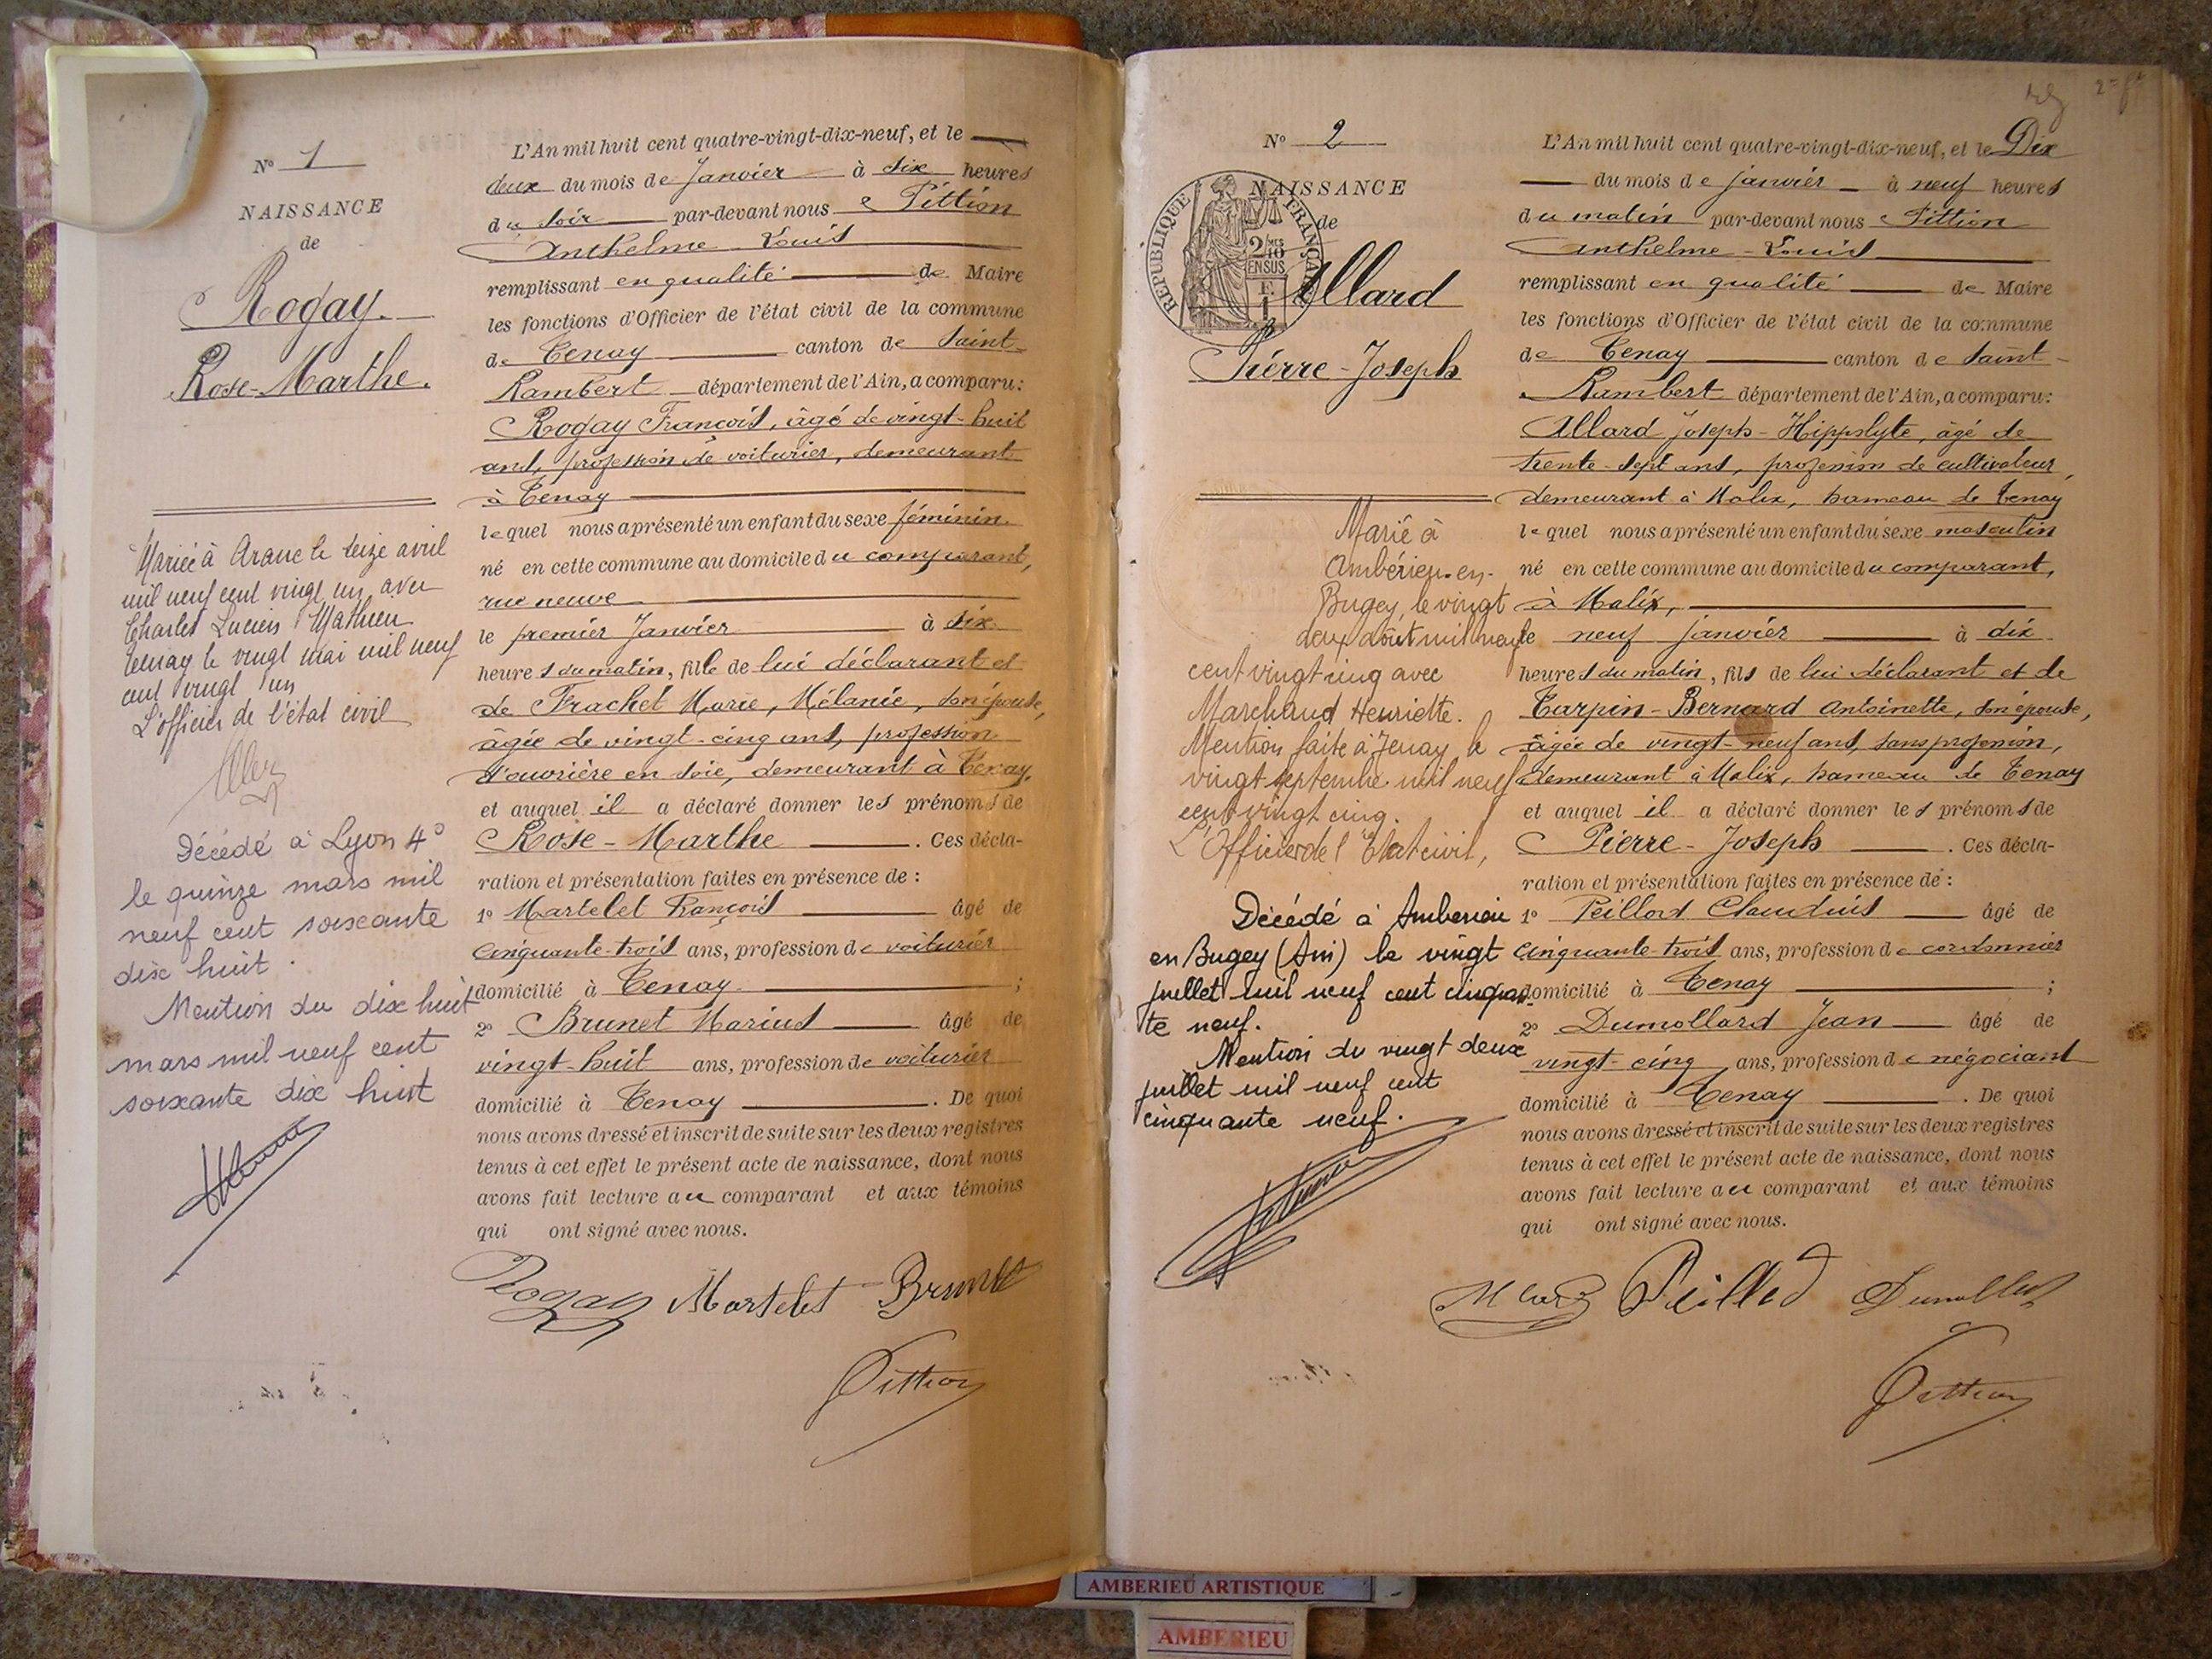 N° 1
NAISSANCE
de
Rogay.
Rose-Marthe.
Mariée à Aranc le seize avril
mil neuf cent vingt un avec
Charles Lucien Mathieu
Tenay le vingt mai mil neuf
cent vingt un
L'officier de l'état civil
Décédé à Lyon 4°
le quinze mars mil
neuf cent soixante
dix huit.
Mention du dix huit
mars mil neuf cent
soixante dix huit
L'An mil huit cent quatre-vingt-dix-neuf, et le
deux du mois de Janvier à six heures
du soir par-devant nous Pittion
Anthelme Louis
remplissant en qualité de Maire
les fonctions d'Officier de l'état civil de la commune
de Tenay canton de Saint-
Rambert département de l'Ain, a comparu:
Rogay François, âgé de vingt-huit
ans, profession de voiturier, demeurant
à Tenay
lequel nous a présenté un enfant du sexe féminin
né en cette commune au domicile du comparant,
rue neuve
le premier Janvier à six
heures du matin, fille de lui déclarant et
de Frachet Marie, Mélanie, son épouse,
âgée de vingt-cinq ans, profession
d'ouvrière en soie, demeurant à Tenay,
et auquel il a déclaré donner les prénoms de
Rose-Marthe. Ces décla-
ration et présentation faites en présence de :
1° Martelet François âgé de
cinquante-trois ans, profession de voiturier
domicilié à Tenay ;
2° Brunet Marius âgé de
vingt-huit ans, profession de voiturier
domicilié à Tenay. De quoi
nous avons dressé et inscrit de suite sur les deux registres
tenus à cet effet le présent acte de naissance, dont nous
avons fait lecture au comparant et aux témoins
qui ont signé avec nous.
Rogay Martelet Brunet
Pittion
N° 2
NAISSANCE
de
RÉPUBLIQUE FRANÇAISE
2/10 EN SUS
Allard
Pierre-Joseph
Marié à
Ambérieu-en-
Bugey, le vingt
deux août mil neuf
cent vingt cinq avec
Marchand Henriette.
Mention faite à Tenay le
vingt septembre mil neuf
cent vingt cinq.
L'Officier de l'Etat civil,
Décédé à Amberieu
en Bugey (Ain) le vingt
juillet mil neuf cent cinquan-
te neuf.
Mention du vingt deux
juillet mil neuf cent
cinquante neuf.
L'An mil huit cent quatre-vingt-dix-neuf, et le Dix
du mois de janvier à neuf heures
du matin par-devant nous Pittion
Anthelme-Louis
remplissant en qualité de Maire
les fonctions d'Officier de l'état civil de la commune
de Tenay canton de Saint-
Rambert département de l'Ain, a comparu:
Allard Joseph-Hippolyte, âgé de
trente-sept ans, profession de cultivateur,
demeurant à Malix, hameau de Tenay
lequel nous a présenté un enfant du sexe masculin
né en cette commune au domicile du comparant,
à Malix,
le neuf janvier à dix
heures du matin, fils de lui déclarant et de
Tarpin-Bernard Antoinette, son épouse,
âgée de vingt-neuf ans, sans profession,
demeurant à Malix, hameau de Tenay
et auquel il a déclaré donner les prénoms de
Pierre-Joseph. Ces décla-
ration et présentation faites en présence de :
1° Peillod Claudius âgé de
cinquante-trois ans, profession de cordonnier
domicilié à Tenay ;
2° Dumollard Jean âgé de
vingt-cinq ans, profession de négociant
domicilié à Tenay. De quoi
nous avons dressé et inscrit de suite sur les deux registres
tenus à cet effet le présent acte de naissance, dont nous
avons fait lecture au comparant et aux témoins
qui ont signé avec nous.
Peillod Dumollard
Pittion
AMBERIEU ARTISTIQUE
AMBERIEU